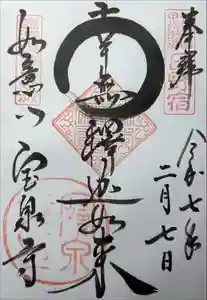 奉拝
令和七年
二月七日
南無釋迦如来
如意山
宝泉寺